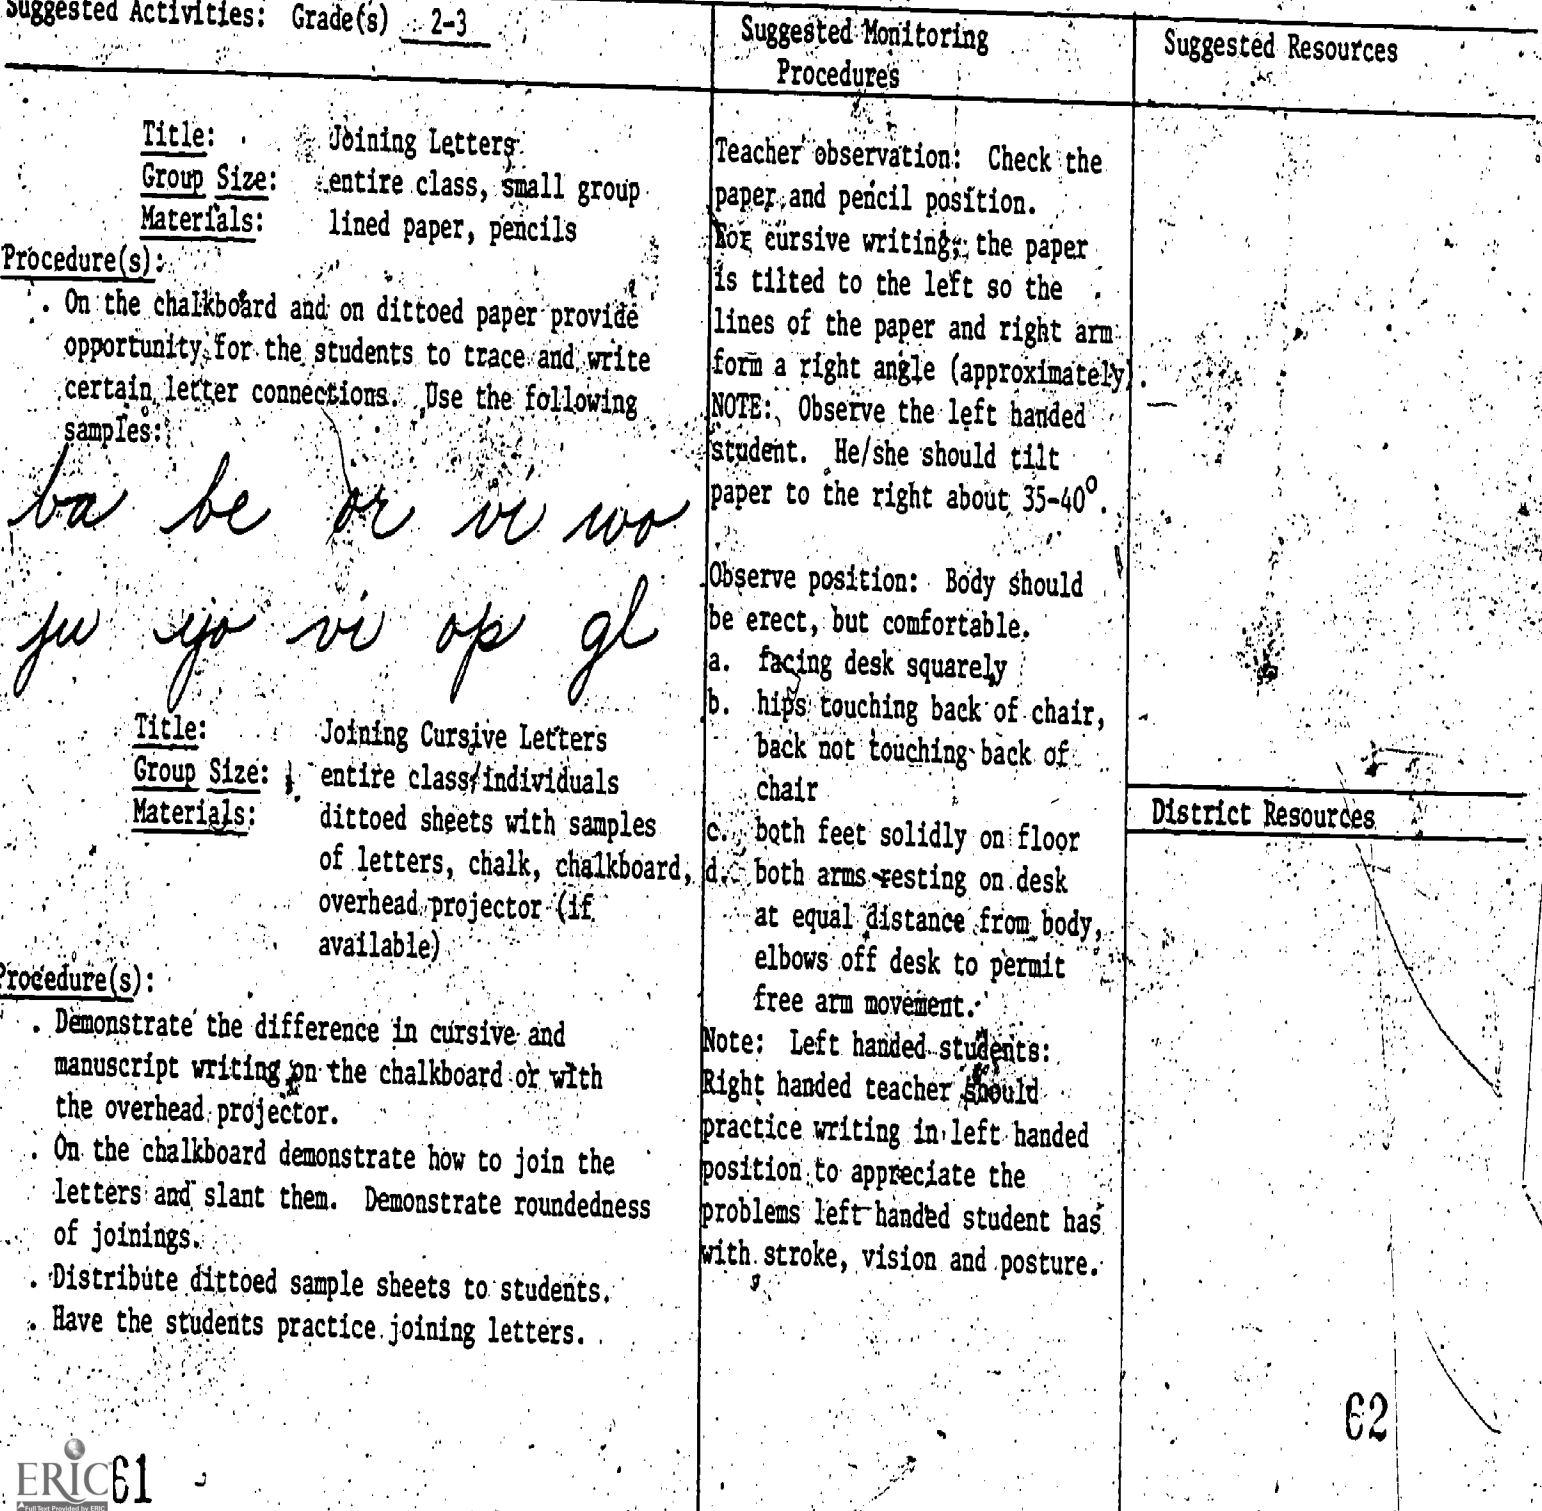 Suggested Activities: Grade(s) 2-3
Title: Joining Letters
Group Size: entire class, small group
Materials: lined paper, pencils
Procedure(s):
. On the chalkboard and on dittoed paper provide
opportunity for the students to trace and write
certain letter connections. Use the following
samples:
ba be or vi wo
ju yo vi op gl
Title: Joining Cursive Letters
Group Size: entire class/individuals
Materials: dittoed sheets with samples
of letters, chalk, chalkboard,
overhead projector (if
available)
Procedure(s):
. Demonstrate the difference in cursive and
manuscript writing on the chalkboard or with
the overhead projector.
. On the chalkboard demonstrate how to join the
letters and slant them. Demonstrate roundedness
of joinings.
. Distribute dittoed sample sheets to students.
. Have the students practice joining letters.
Suggested Monitoring
Procedures
Teacher observation: Check the
paper and pencil position.
For cursive writing, the paper
is tilted to the left so the
lines of the paper and right arm
form a right angle (approximately).
NOTE: Observe the left handed
student. He/she should tilt
paper to the right about 35-40°.
Observe position: Body should
be erect, but comfortable.
a. facing desk squarely
b. hips touching back of chair,
back not touching back of
chair
c. both feet solidly on floor
d. both arms resting on desk
at equal distance from body,
elbows off desk to permit
free arm movement.
Note: Left handed students:
Right handed teacher should
practice writing in left handed
position to appreciate the
problems left handed student has
with stroke, vision and posture.
Suggested Resources
District Resources
62
ERIC 61
Full Text Provided by ERIC